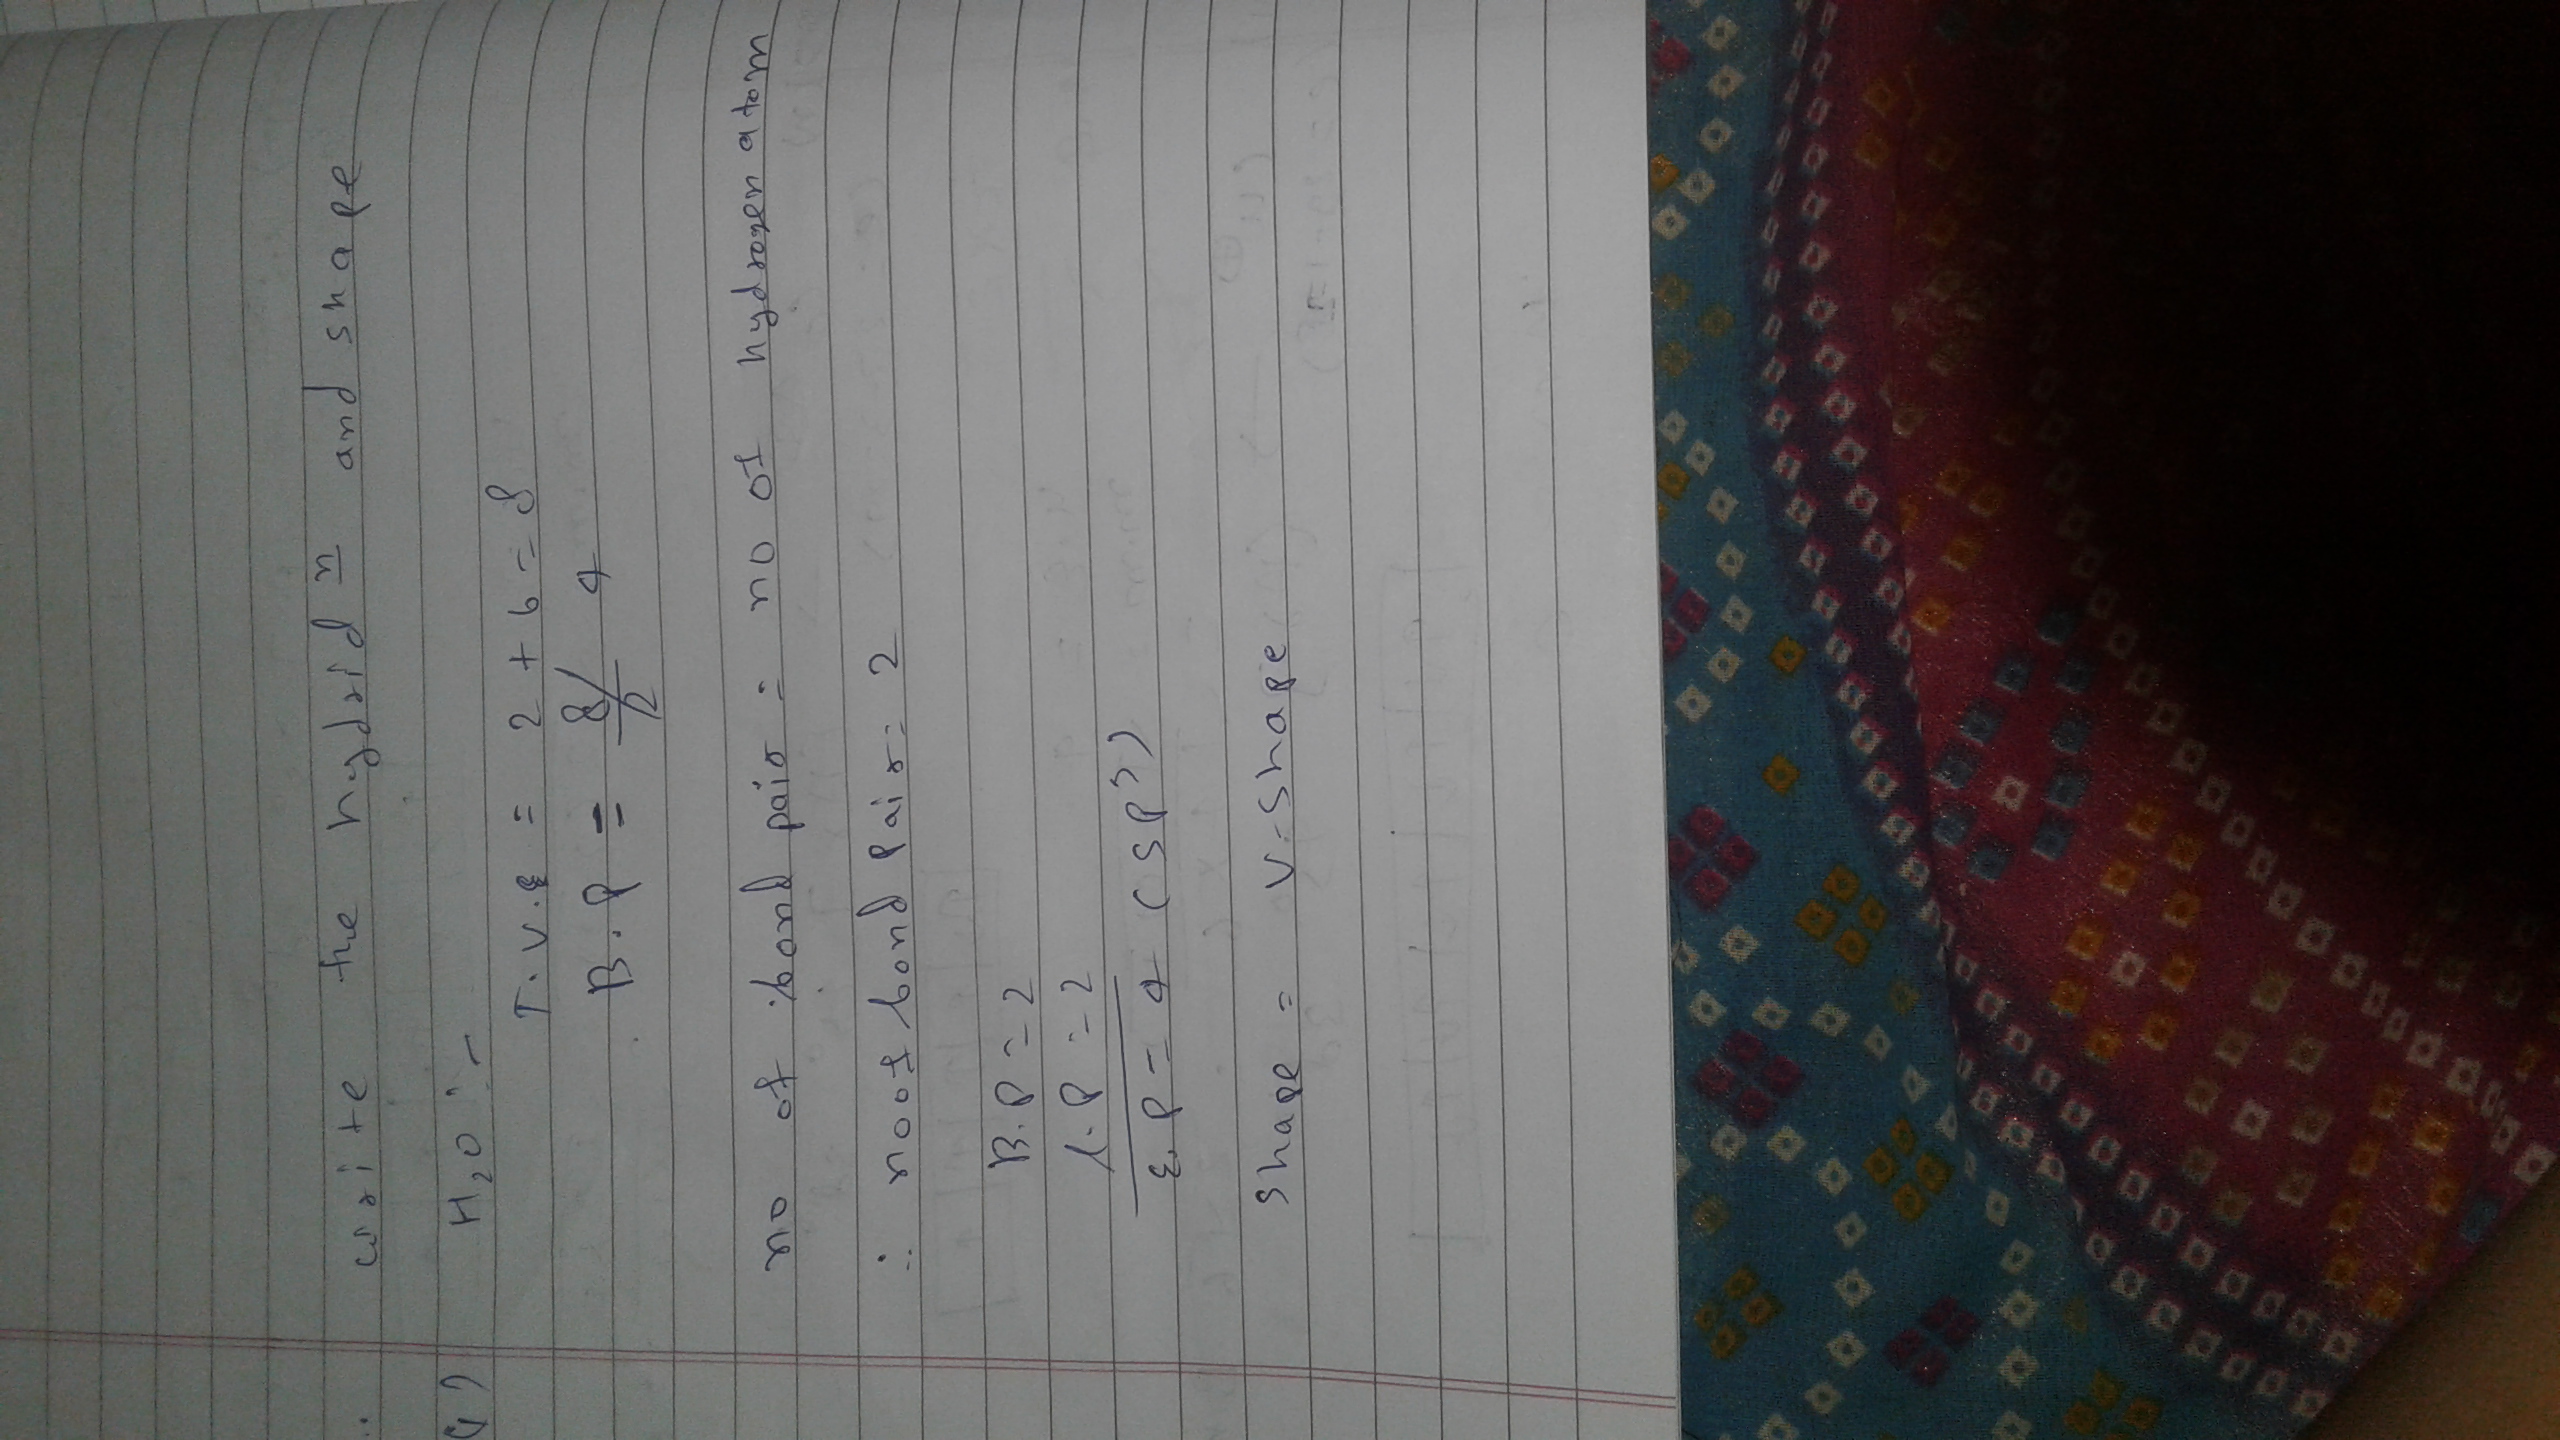 write the hydrid n and shape
H2O :-
T.V.E = 2 + 6 = 8
B.P = 8/2 4
no of bond pair = no of hydrogen atom
∴ no of bond Pair = 2
B.P = 2
l.P = 2
E.P = 4 (SP3)
Shape = V-Shape